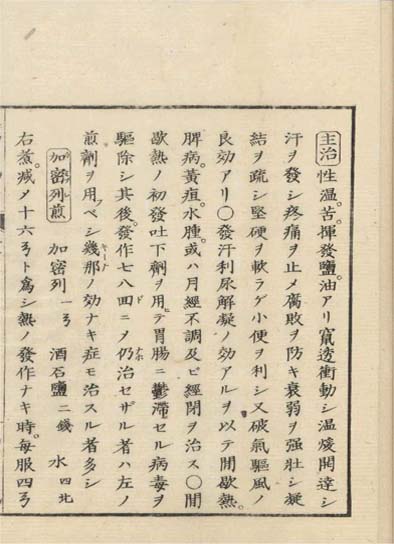 主治 性温。苦。揮發鹽油アリ竄透衝動シ温煖開達シ
汗ヲ發シ疼痛ヲ止メ腐敗ヲ防キ衰弱ヲ强壮シ凝
結ヲ疏シ堅硬ヲ軟ラゲ小便ヲ利シ又破氣驅風ノ
良効アリ○發汗利尿解凝ノ効アルヲ以テ間歇熱。
脾病。黄疸。水腫。或ハ月經不調及ビ經閉ヲ治ス○間
歇熱ノ初發吐下劑ヲ用ヒテ胃腸ニ鬱滞セル病毒ヲ
驅除シ其後。發作七八回ニメ仍治セザル者ハ左ノ
煎劑ヲ用フベシ幾那ノ効ナキ症モ治スル者多シ
加密列煎 加密列 一ヲ 酒石鹽 二錢 水 四北
右煮减メ十六ヲト爲シ熱ノ發作ナキ時。每服四ヲ